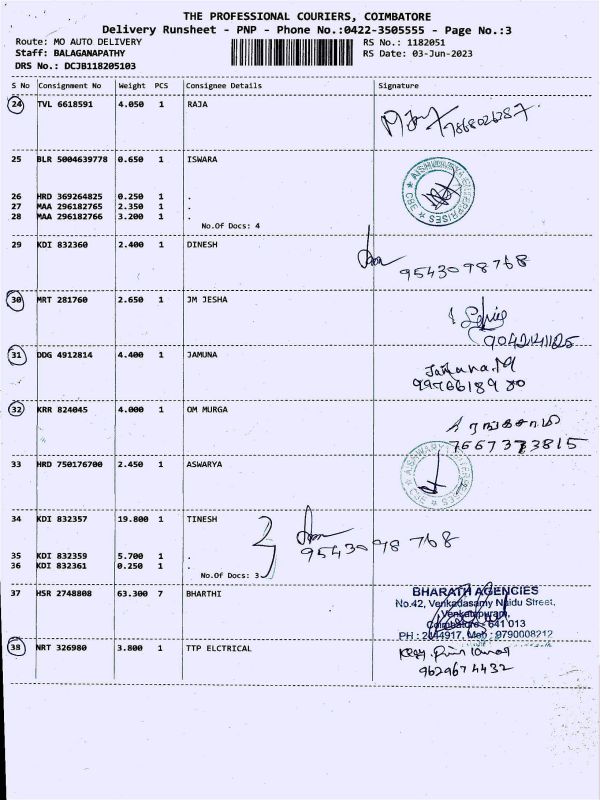 THE PROFESSIONAL COURIERS, COIMBATORE
Delivery Runsheet - PNP - Phone No.:0422-3505555 - Page No.:3
Route: MO AUTO DELIVERY RS No.: 1182051
Staff: BALAGANAPATHY RS Date: 03-Jun-2023
DRS No.: DCJB118205103
S No Consignment No Weight PCS Consignee Details Signature
24 TVL 6618591 4.050 1 RAJA
7868026287.
25 BLR 5004639778 0.650 1 ISWARA
AISHWARYA ENTERPRISES * CBE *
26 HRD 369264825 0.250 1 .
27 MAA 296182765 2.350 1 .
28 MAA 296182766 3.200 1 .
No.Of Docs: 4
29 KDI 832360 2.400 1 DINESH
9543098768
30 MRT 281760 2.650 1 JM JESHA
9042141125
31 DDG 4912814 4.400 1 JAMUNA
9976618980
32 KRR 824045 4.000 1 OM MURGA
7667373815
33 HRD 750176700 2.450 1 ASWARYA
AISHWARYA ENTERPRISES * CBE *
34 KDI 832357 19.800 1 TINESH
9543098768
35 KDI 832359 5.700 1 .
36 KDI 832361 0.250 1 .
No.Of Docs: 3
37 HSR 2748808 63.300 7 BHARTHI
BHARATH AGENCIES
No.42, Venkadasamy Naidu Street,
Coimbatore - 641 013
PH : 2444917, Mob : 9790008212
38 NRT 326980 3.800 1 TTP ELCTRICAL
9629674432